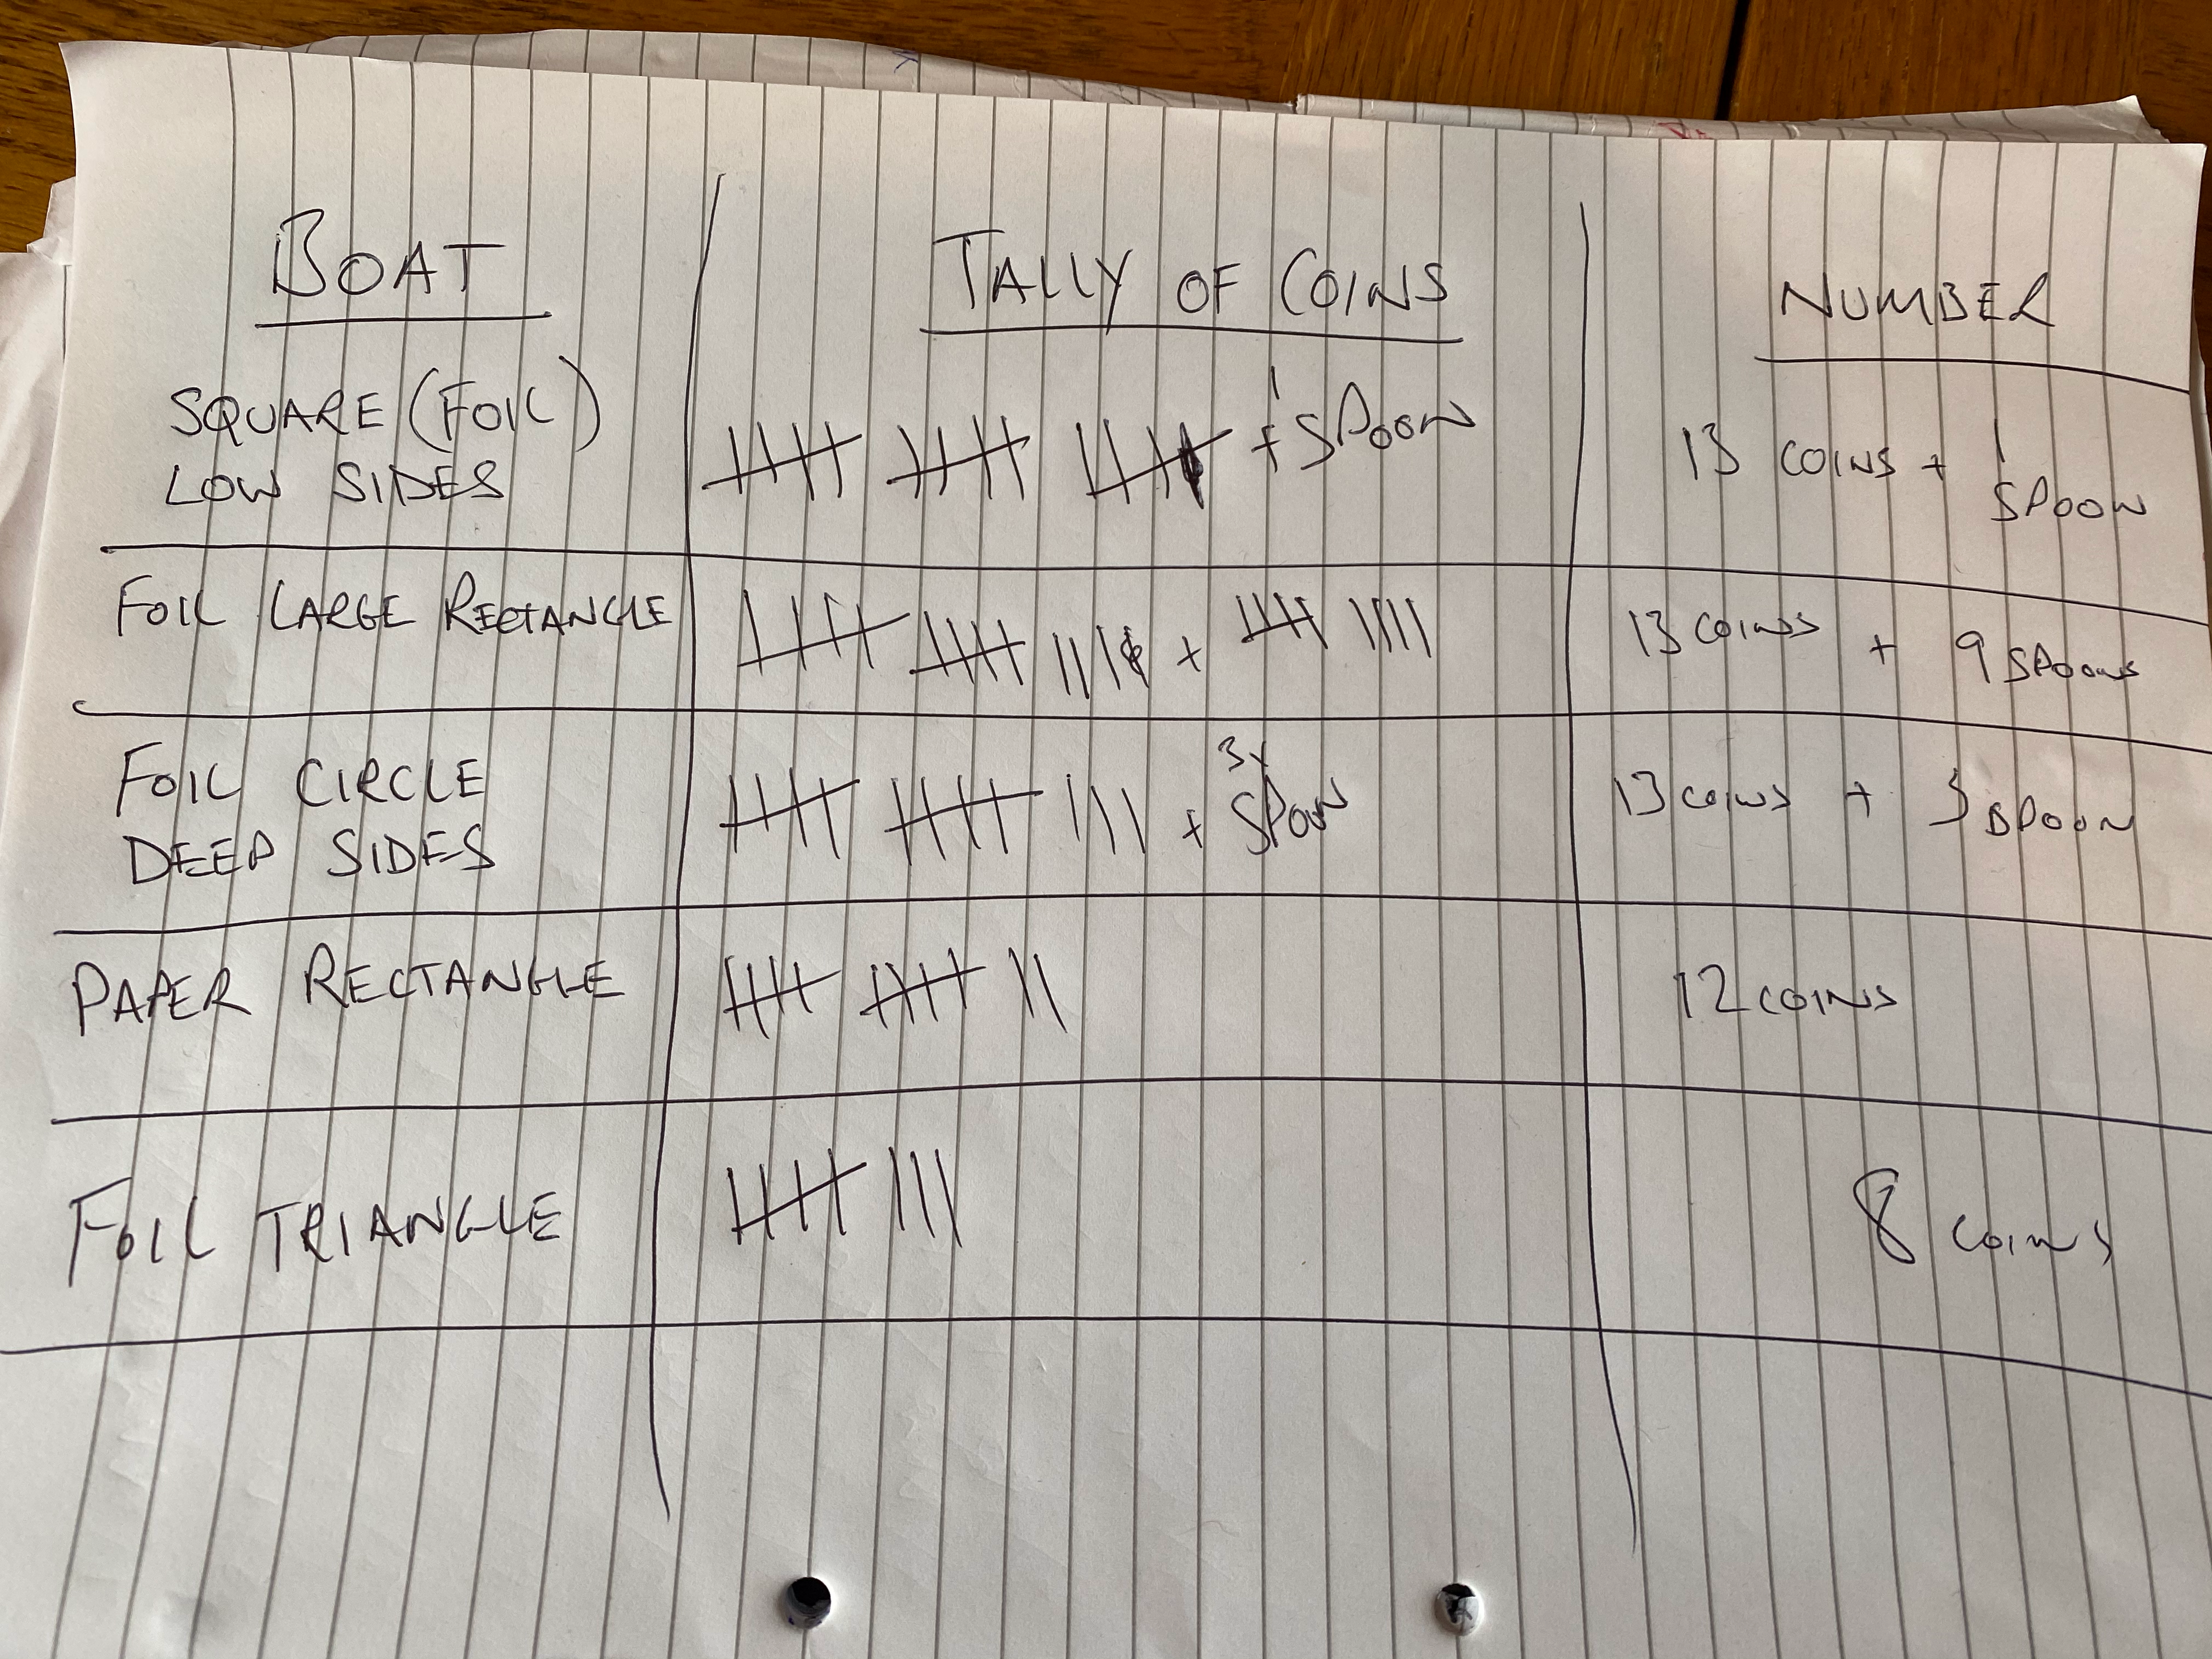 BOAT
TALLY OF COINS
NUMBER
SQUARE (FOIL)
LOW SIDES
+ 1 SPOON
13 COINS + 1 SPOON
FOIL LARGE RECTANGLE
+
13 COINS + 9 SPOONS
FOIL CIRCLE
DEEP SIDES
+ 3x SPOON
13 COINS + 3 SPOON
PAPER RECTANGLE
12 COINS
FOIL TRIANGLE
8 COINS